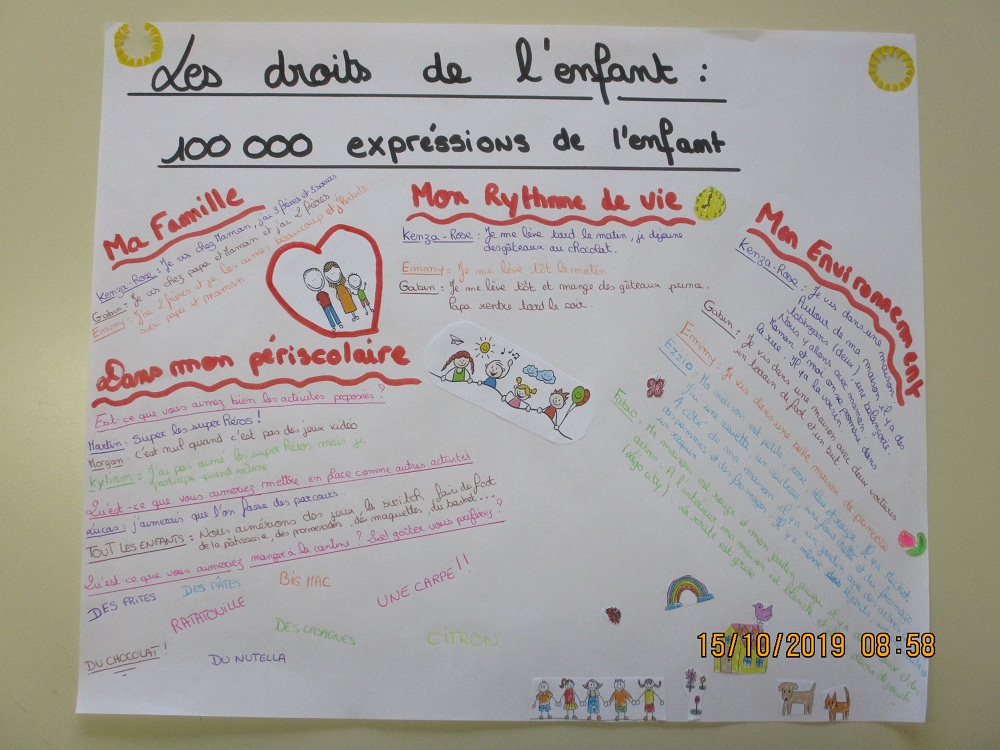 Les droits de l'enfant :
100 000 expréssions de l'enfant
Ma Famille
Kenza-Rose : Je vis chez Maman, j'ai 3 frères et 3 soeurs
Gabin : Je vis chez papa et Maman et j'ai 2 frères
Emmy : J'ai 2 frères et je les aimes beaucoup et j'habite
avec papa et maman
Mon Rythme de vie
Kenza-Rose : Je me lève tard le matin, je dejeune
des gâteaux au chocolat.
Emmy : Je me lève tôt le matin
Gabin : Je me lève tôt et mange des gâteaux prince.
Papa rentre tard le soir.
Mon Environnement
Kenza-Rose : Je vis dans une maison
Autour de ma maison il y a des
toboggans (deux), une balançoire.
Nous y allons avec maman.
Maman et moi on se promène dans
la rue. Il y a la voisin
Gabin : Je vis dans une maison avec deux voitures
un terrain de foot et un but.
Emmy : Je vis dans une belle maison de
Ezzio : Ma maison est petite, rose, bleu et rouge. Il y a
J'ai une assiette, un couteau, une fourchette et du fromage
A côté de ma maison il y a un
des pommes et des fromages. Il y a même des
Ma maison est rouge et mon jardin
A l'intérieur ma maison est blanche et
est grise
(Lego city)
Dans mon périscolaire
Est-ce que vous aimez bien les activités proposées ?
Martin : Super les super Héros !
Morgan : c'est nul quand c'est pas des jeux vidéo
Kyliam : J'ai pas aimé les super Héros mais je
participe quand même
Qu'est-ce que vous aimeriez mettre en place comme autres activités
Lucas : j'aimerais que l'on fasse des parcours
TOUT LES ENFANTS : Nous aimerions des jeux, la switch, faire du foot
de la pâtisserie, des promenades, des maquettes, du basket...
Qu'est-ce que vous aimeriez manger à la cantine ? Quel goûter vous préférez ?
DES FRITES
DES PÂTES
BIG MAC
RATATOUILLE
UNE CARPE !!
DES LASAGNES
CITRON
DU CHOCOLAT !
DU NUTELLA
15/10/2019 08:58